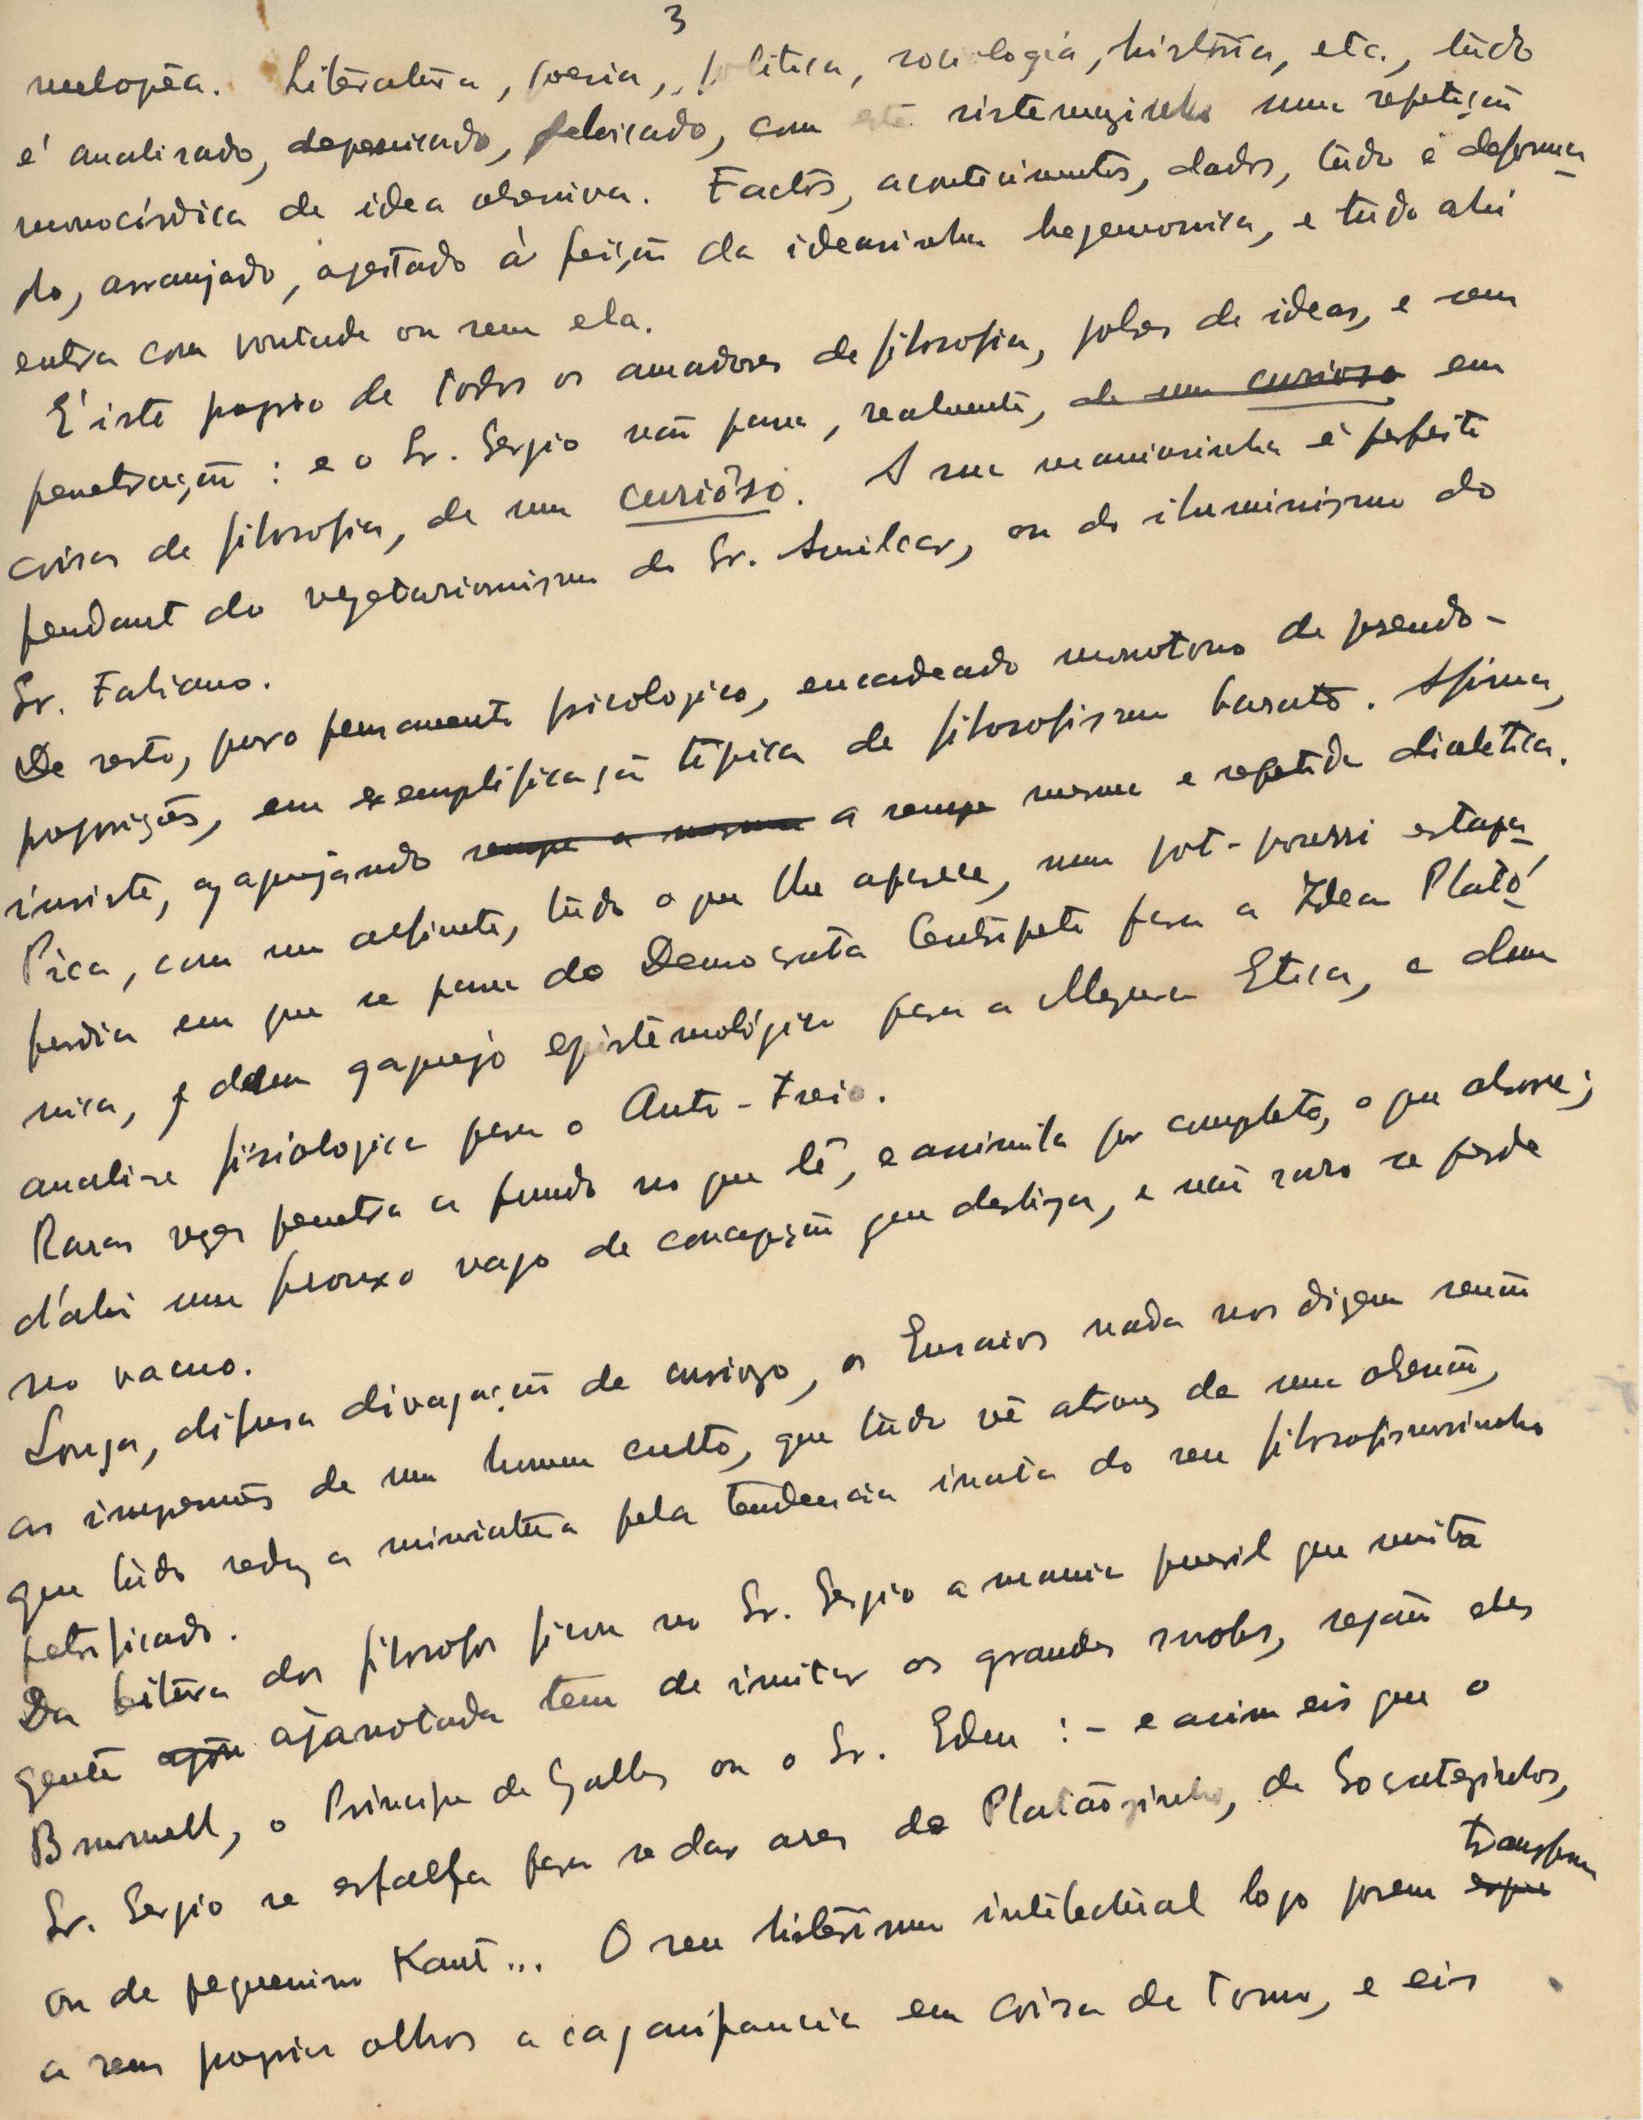 3
melopêa. Literatura, poesia, politica, sociologia, história, etc., tudo
é analisado, depenicado, debicado, com este sistemazinho numa repetição
monocórdica de idea obsessiva. Factos, acontecimentos, dados, tudo é deforma
do, arranjado, ajeitado à feição da ideasinha hegemonica, e tudo ahi
entra com vontade ou sem ela.
É isto proprio de todos os amadores de filosofia, pobres de ideas, e sem
penetração: e o Sr. Sergio não passa, realmente, de um curioso em
coisas de filosofia, de um curiôso. A sua maniasinha é perfeito
pendant do vegetarianismo do Sr. Amilcar, ou do iluminismo do
Sr. Fabiano.
De resto, puro pensamento psicologico, encadeado monotono de pseudo-
proposições, em exemplificação típica de filosofismo barato. Afirma,
insiste, gaguejando sempre a mesma a sempre mesma e repetida dialetica.
Pica, com um alfinete, tudo o que lhe aparece, num pot-pourri estapa
furdia em que se passa do Democrata Centrípeto para a Idea Plató
nica, e dum gaguejo epistemológico para a Magna Etica, e duma
analise fisiologica para o Auto-freio.
Raras vezes penetra a fundo no que lê, e assimila por completo, o que absorve;
d'ahi um frouxo vago de concepção que desliza, e não raro se perde
no vacuo.
Longa, difusa divagação de curiozo, os Ensaios nada nos dizem senão
as impressões de um homem culto, que tudo vê atravez de uma obsessão,
que tudo reduz a miniatura pela tendencia inata do seu filosofismosinho
petrificado.
Da leitura dos filosofos ficou no Sr. Sergio a mania pueril que muita
gente ajanotada tem de imitar os grandes snobs, sejam eles
Brummell, o Principe de Galles ou o Sr. Eden: - e assim eis que o
Sr. Sergio se esfalfa para se dar ares de Platãozinho, de Socratezinhos,
ou de pequenino Kant... O seu histerismo intelectual logo porem transforma
a seus proprios olhos a caganifancia em coisa de tomo, e eis